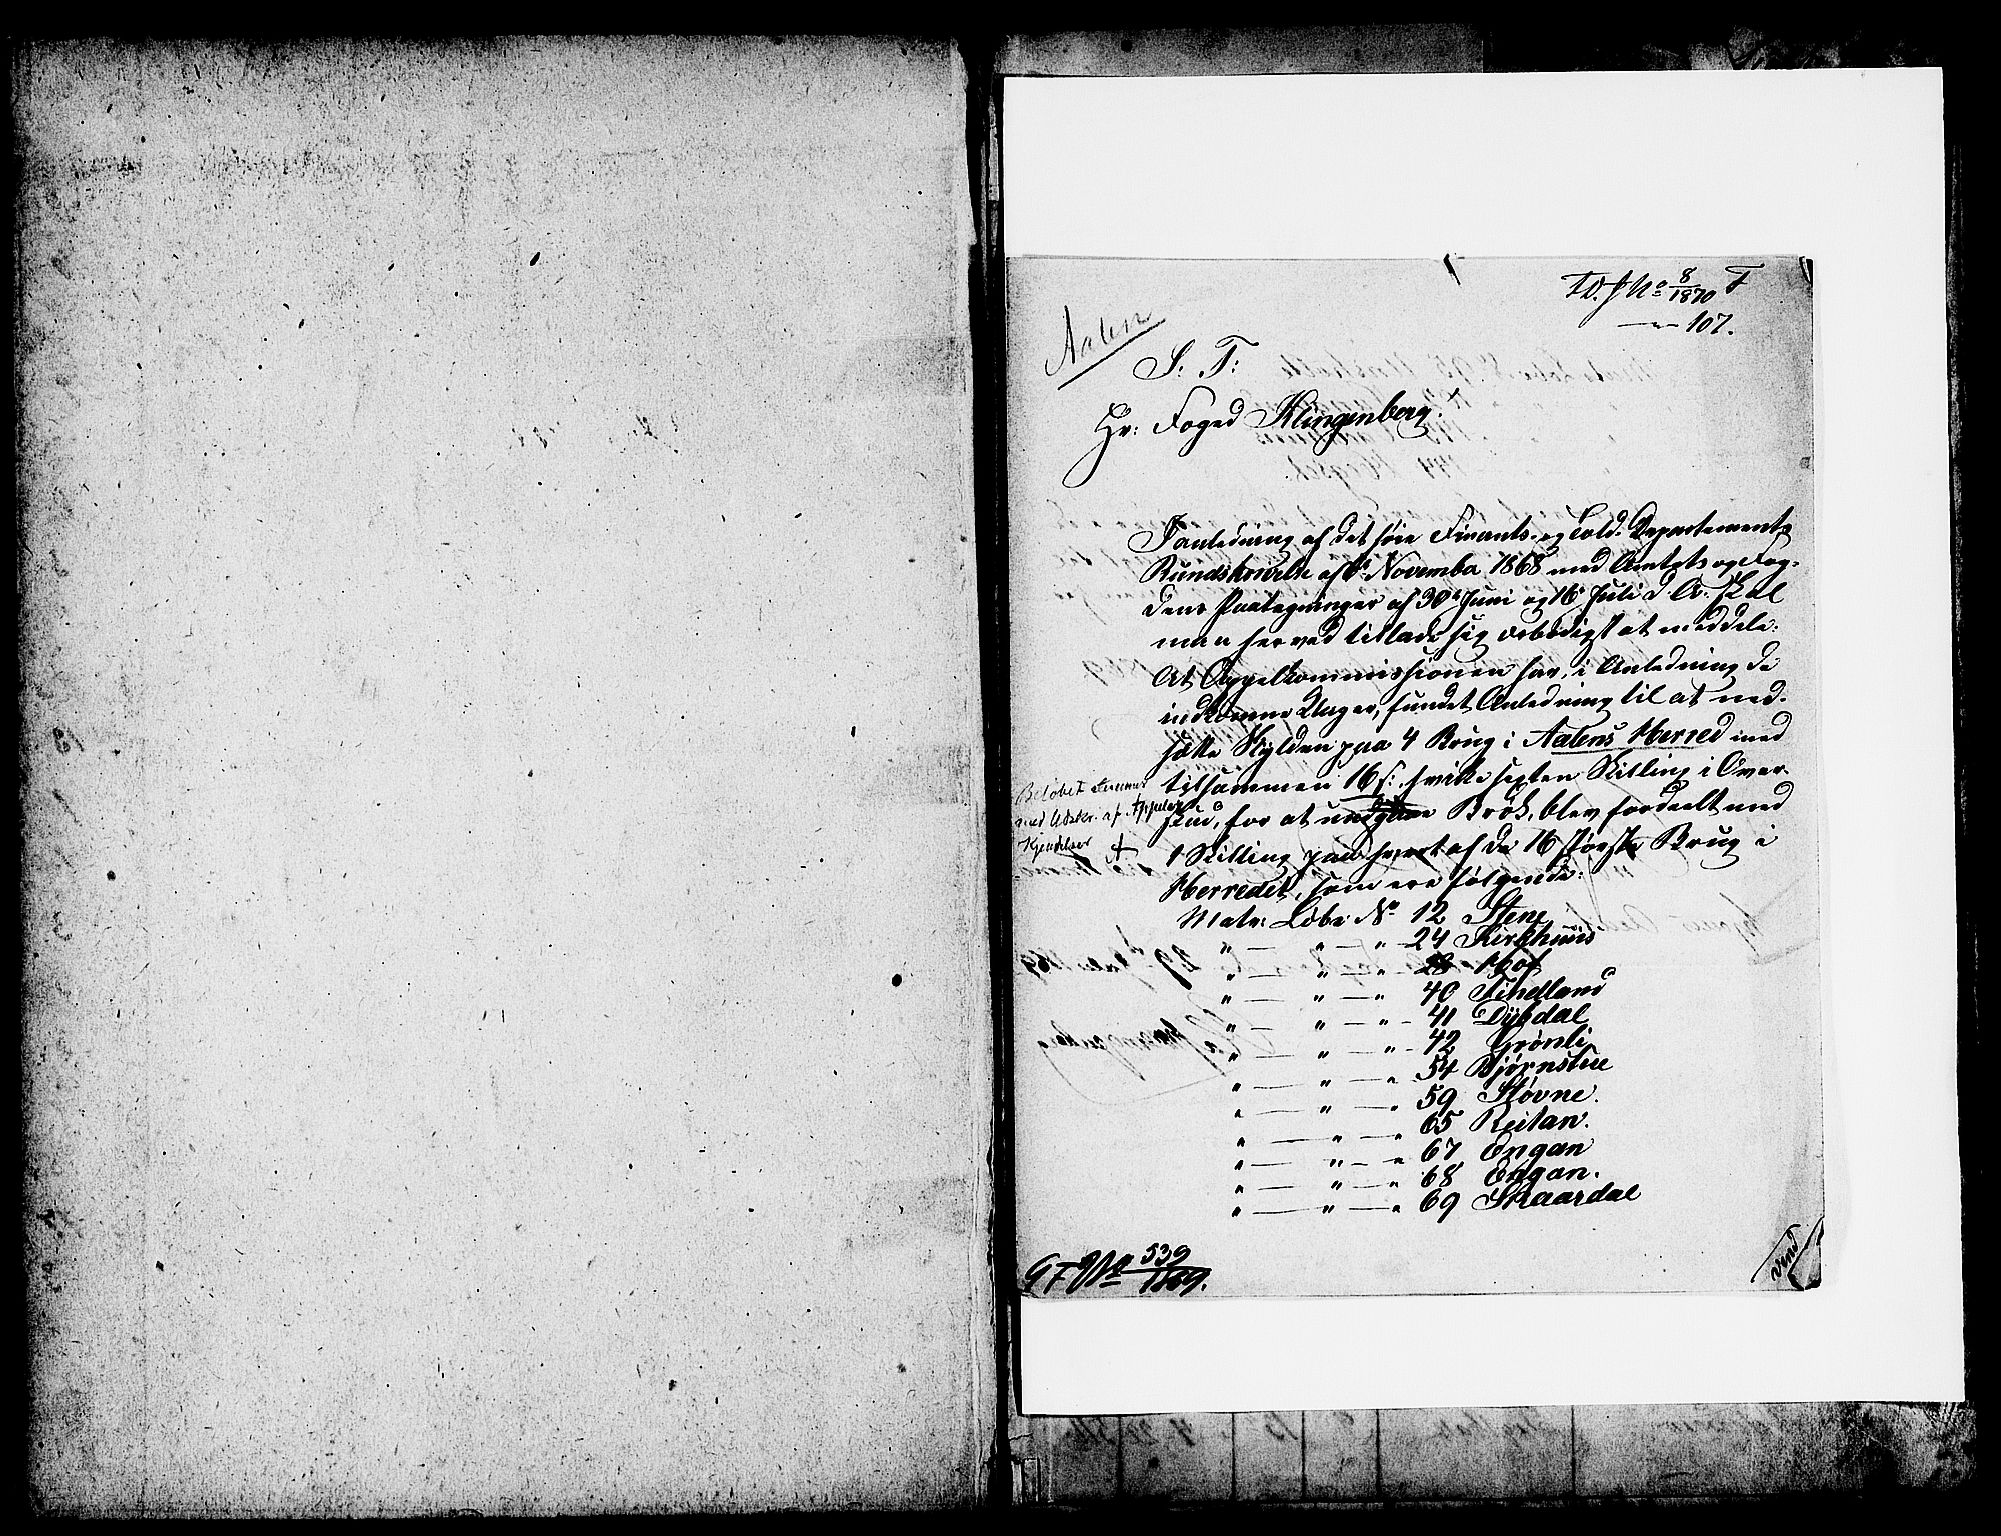 F.D.J No 8/1870 F
— " — 107.
Aalen
S. T:
Hr: Foged Klingenberg.
I anledning af det høie Finants- og Told-Departements
Rundskrivelse af 6te November 1868 med Amtets og Fog-
dens Paategninger af 30te Juni og 16de Juli d. A. skal
man herved tillade sig ærbødigst at meddele:
At Appelkommissionen har, i Anledning de
indkomne Klager, fundet Anledning til at ned-
sætte Skylden paa 4 Brug i Aalens Herred med
tilsammen 16 s: hvilke sexten Skilling i Over-
skud, for at undgaae Brøk, blev fordeelt med
1 Skilling paa hvert af de 16 største Brug i
Herredet, som ere følgende:
Beløbet stemmer
med Udskr. af Appelex
Kjendelser
Matr: Løbe No 12 Stene
" — " — " 24 Kirkhuus
" — " — " 28 Hof
" — " — " 40 Findland
" — " — " 41 Dybdal
" — " — " 42 Grønli
" — " — " 54 Bjørnstue
" — " — " 59 Støvne.
" — " — " 65 Reitan.
" — " — " 67 Engan
" — " — " 68 Engan.
" — " — " 69 Skaardal
GF No 539/1869.
vend